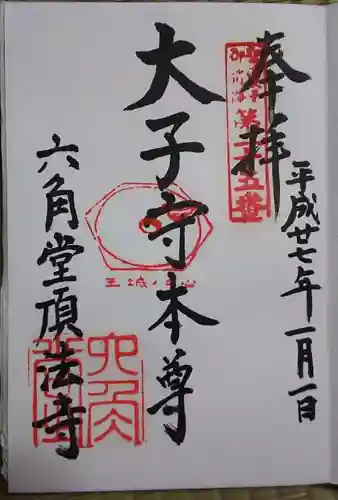 奉拝
平成廿七年一月一日
第十五番
大子守本尊
六角堂頂法寺
六角